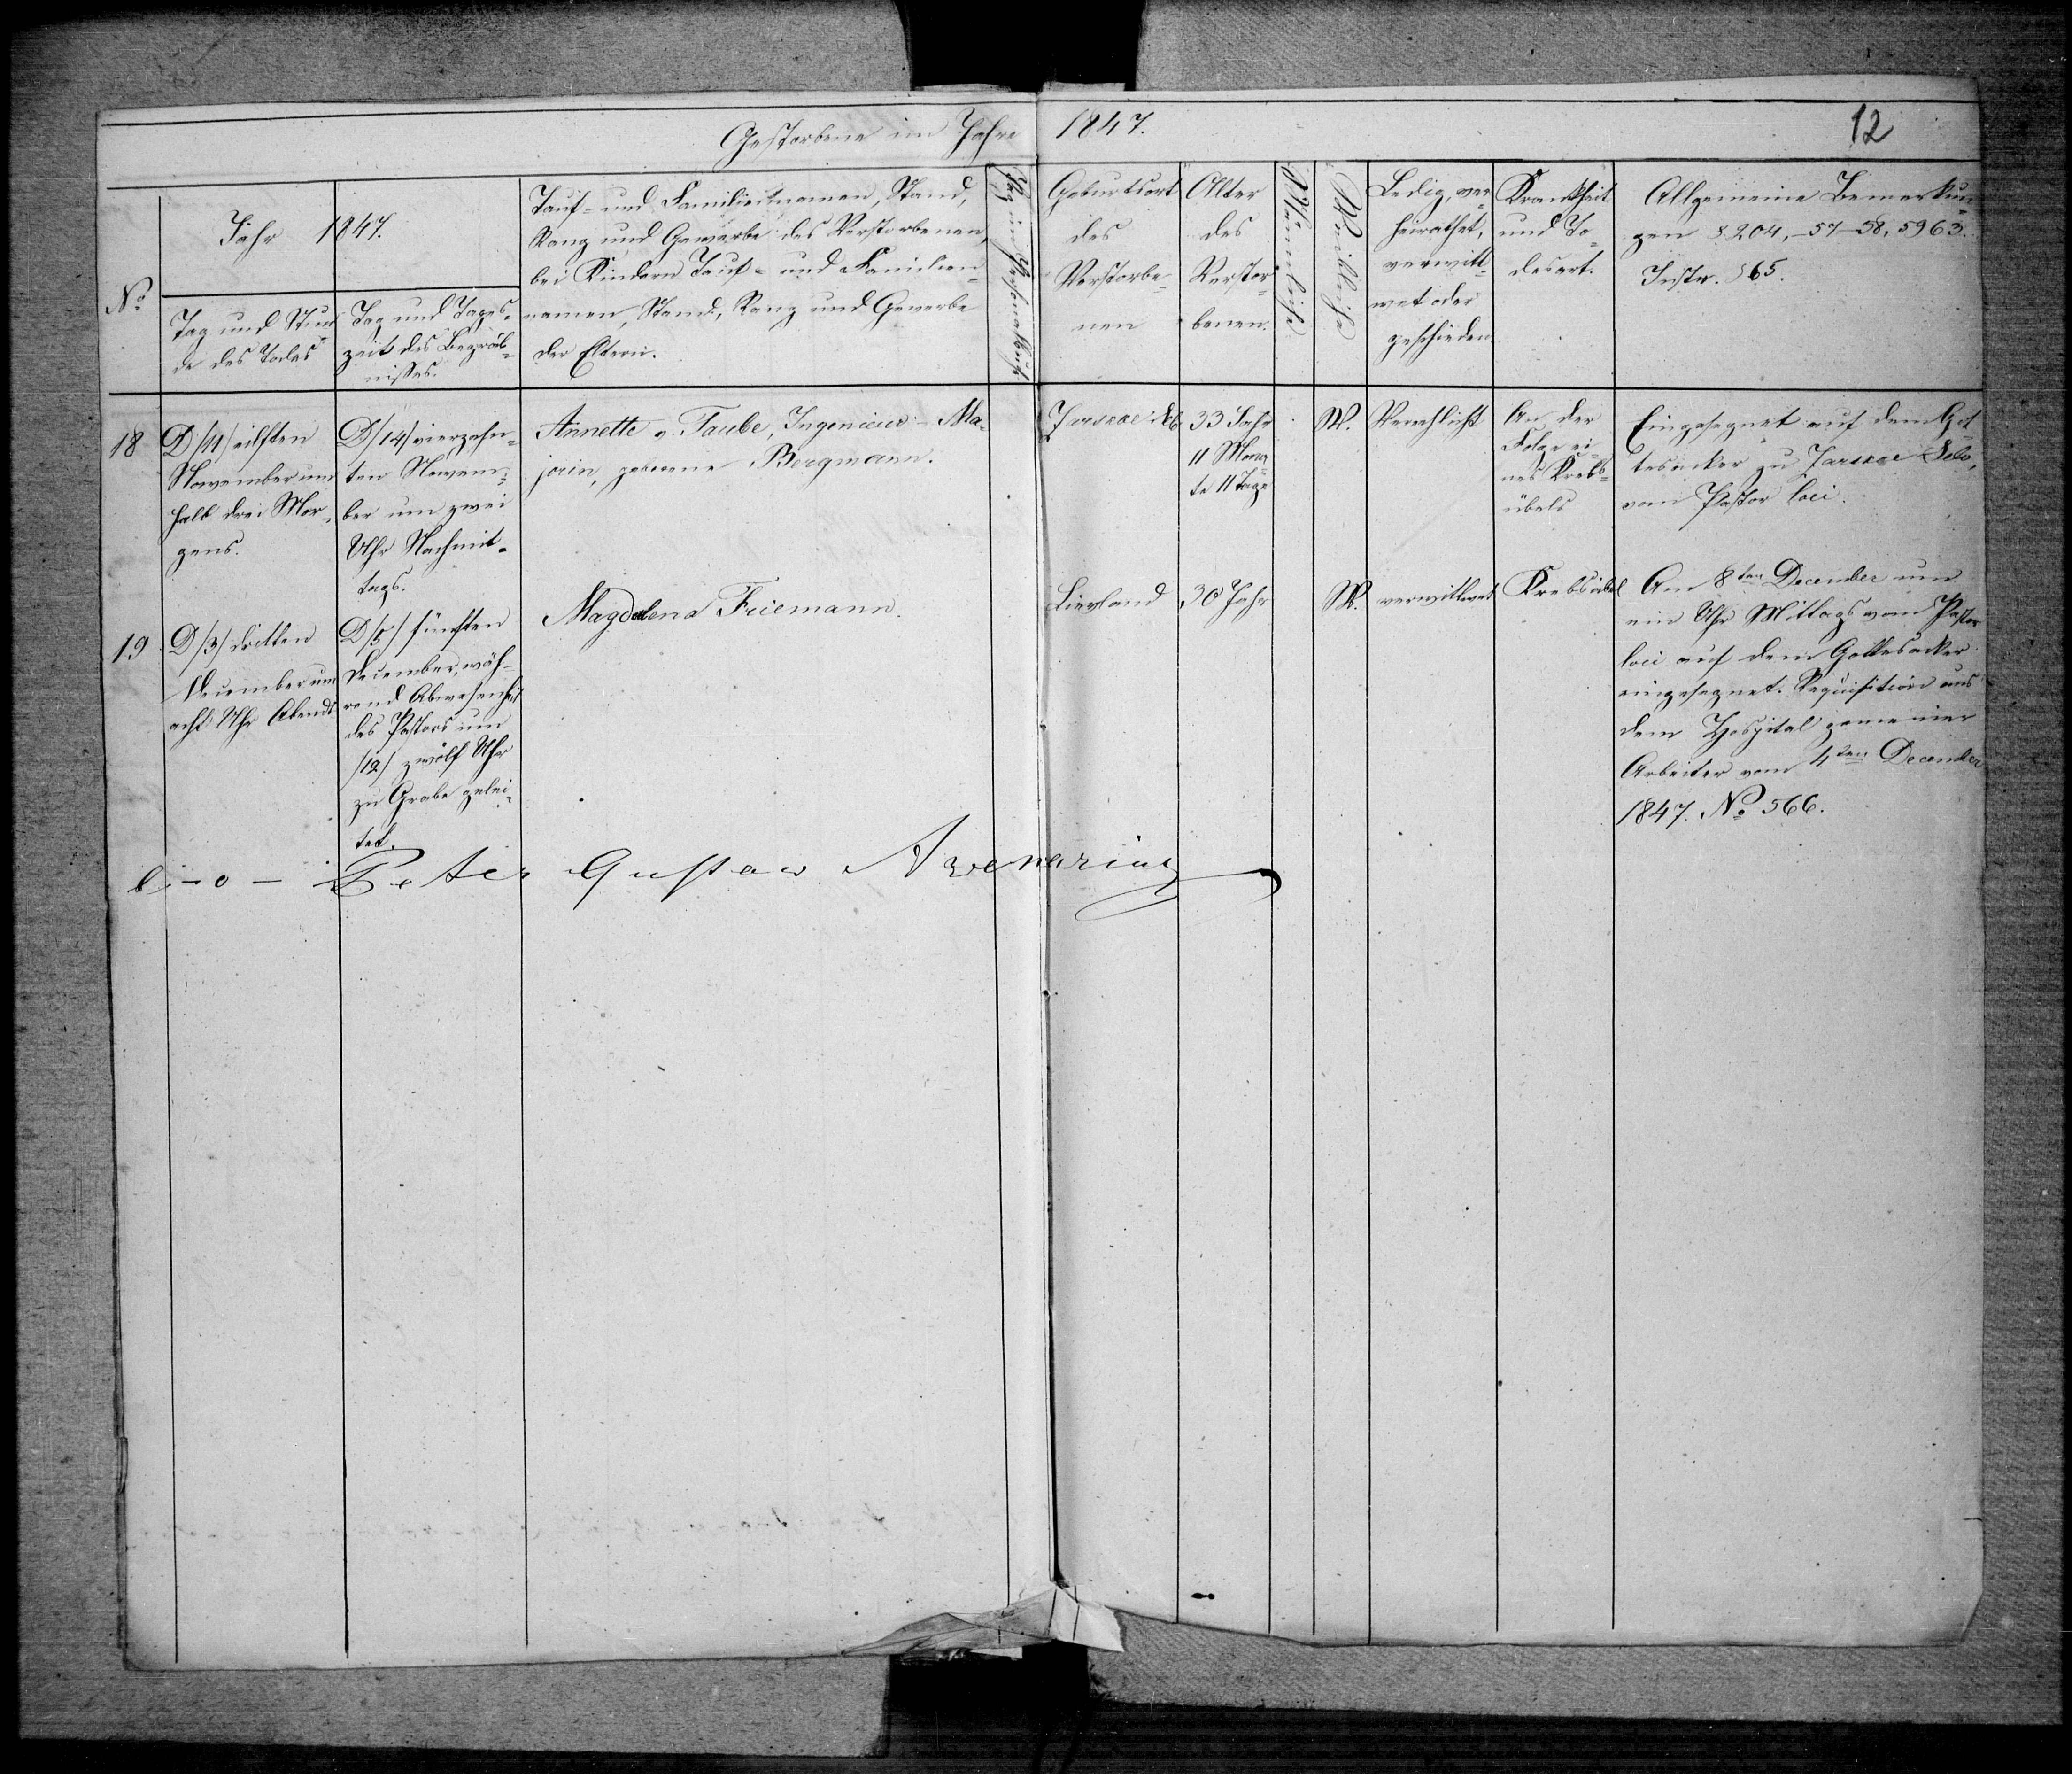 Gestorbene im Jahre 1847.
12
No
Jahr 1847.
Tag und Stun
de des Todes
Tag und Tages-
zeit des Begräb-
nisses.
Tauf- und Familiennamen, Stand,
Rang und Gewerbe des Verstorbenen,
bei Kindern Tauf- und Familien-
namen, Stand, Rang und Gewerbe
der Eltern.
Geburtsort
des
Verstorbe-
nen
Alter
des
Verstor-
benen.
Männlich
Weiblich
Ledig, ver-
heirathet,
verwitt-
wet oder
geschieden
Krankheit
und To-
desart.
Allgemeine Bemerkun-
gen § 204, -57-58, 5963.
Instr. § 65.
18
D/11/ eilften
November um
halb drei Mor-
gens.
D/14/ vierzehn-
ten Novem-
ber um zwei
Uhr Nachmit-
tags.
Annette v. Taube, Ingenieur-Ma-
jorin, geborene Bergmann.
Zarskoe Selo
33 Jahr
11 Mona-
te 11 Tage
W.
Verehlicht
An der
Folge ei-
nes Krebs-
übels
Eingesegnet auf dem Got-
tesacker zu Zarskoe Selo,
vom Pastor loci.
19
D/3/ dritten
December um
acht Uhr Abends
D/5/ fünften
December, wäh-
rend Abwesenheit
des Pastors um
/12/ zwölf Uhr
zu Grabe gelei-
tet.
Magdalena Friemann.
Lievland
30 Jahr
W.
verwittwet
Krebsübel
Am 8ten December um
ein Uhr Mittags vom Pastor
loci auf dem Gottesacker
eingesegnet. Requisition aus
dem Hospital gemeiner
Arbeiter vom 4ten December
1847. No 566.
Peter Gustav Avenarius